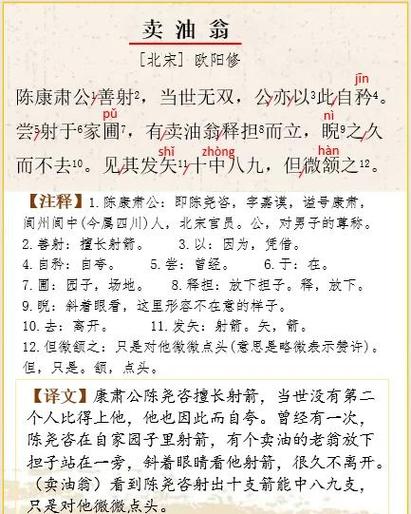 卖油翁
[北宋] 欧阳修
jīn
陈康肃公1善射2，当世无双，公亦以3此自矜4。
pǔ nì
尝5射于6家圃7，有卖油翁释担8而立，睨9之久
shǐ zhòng hàn
而不去10。见其发矢11十中八九，但微颔之12。
【注释】1.陈康肃公：即陈尧咨，字嘉谟，谥号康肃，
阆州阆中(今属四川)人，北宋官员。公，对男子的尊称。
2.善射：擅长射箭。 3.以：因为，凭借。
4.自矜：自夸。 5.尝：曾经。 6.于：在。
7.圃：园子，场地。 8.释担：放下担子。释，放下。
9.睨：斜着眼看，这里形容不在意的样子。
10.去：离开。 11.发矢：射箭。矢，箭。
12.但微颔之：只是对他微微点头(意思是略微表示赞许)。
但，只是。颔，点头。
【译文】康肃公陈尧咨擅长射箭，当世没有第二
个人比得上他，他也因此而自夸。曾经有一次，
陈尧咨在自家园子里射箭，有个卖油的老翁放下
担子站在一旁，斜着眼睛看他射箭，很久不离开。
（卖油翁）看到陈尧咨射出十支箭能中八九支，
只是对他微微点头。